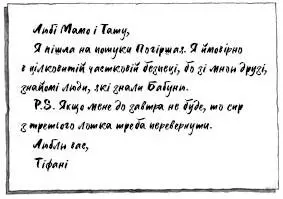 Любі Мамо і Тату,
Я пішла на пошуки Погіршая. Я ймовірно
в цілковитій частковій безпеці, бо зі мною друзі,
знайомі люди, які знали Бабуню.
P.S. Якщо мене до завтра не буде, то сир
з третього лотка треба перевернути.
Люблю вас,
Тіфані